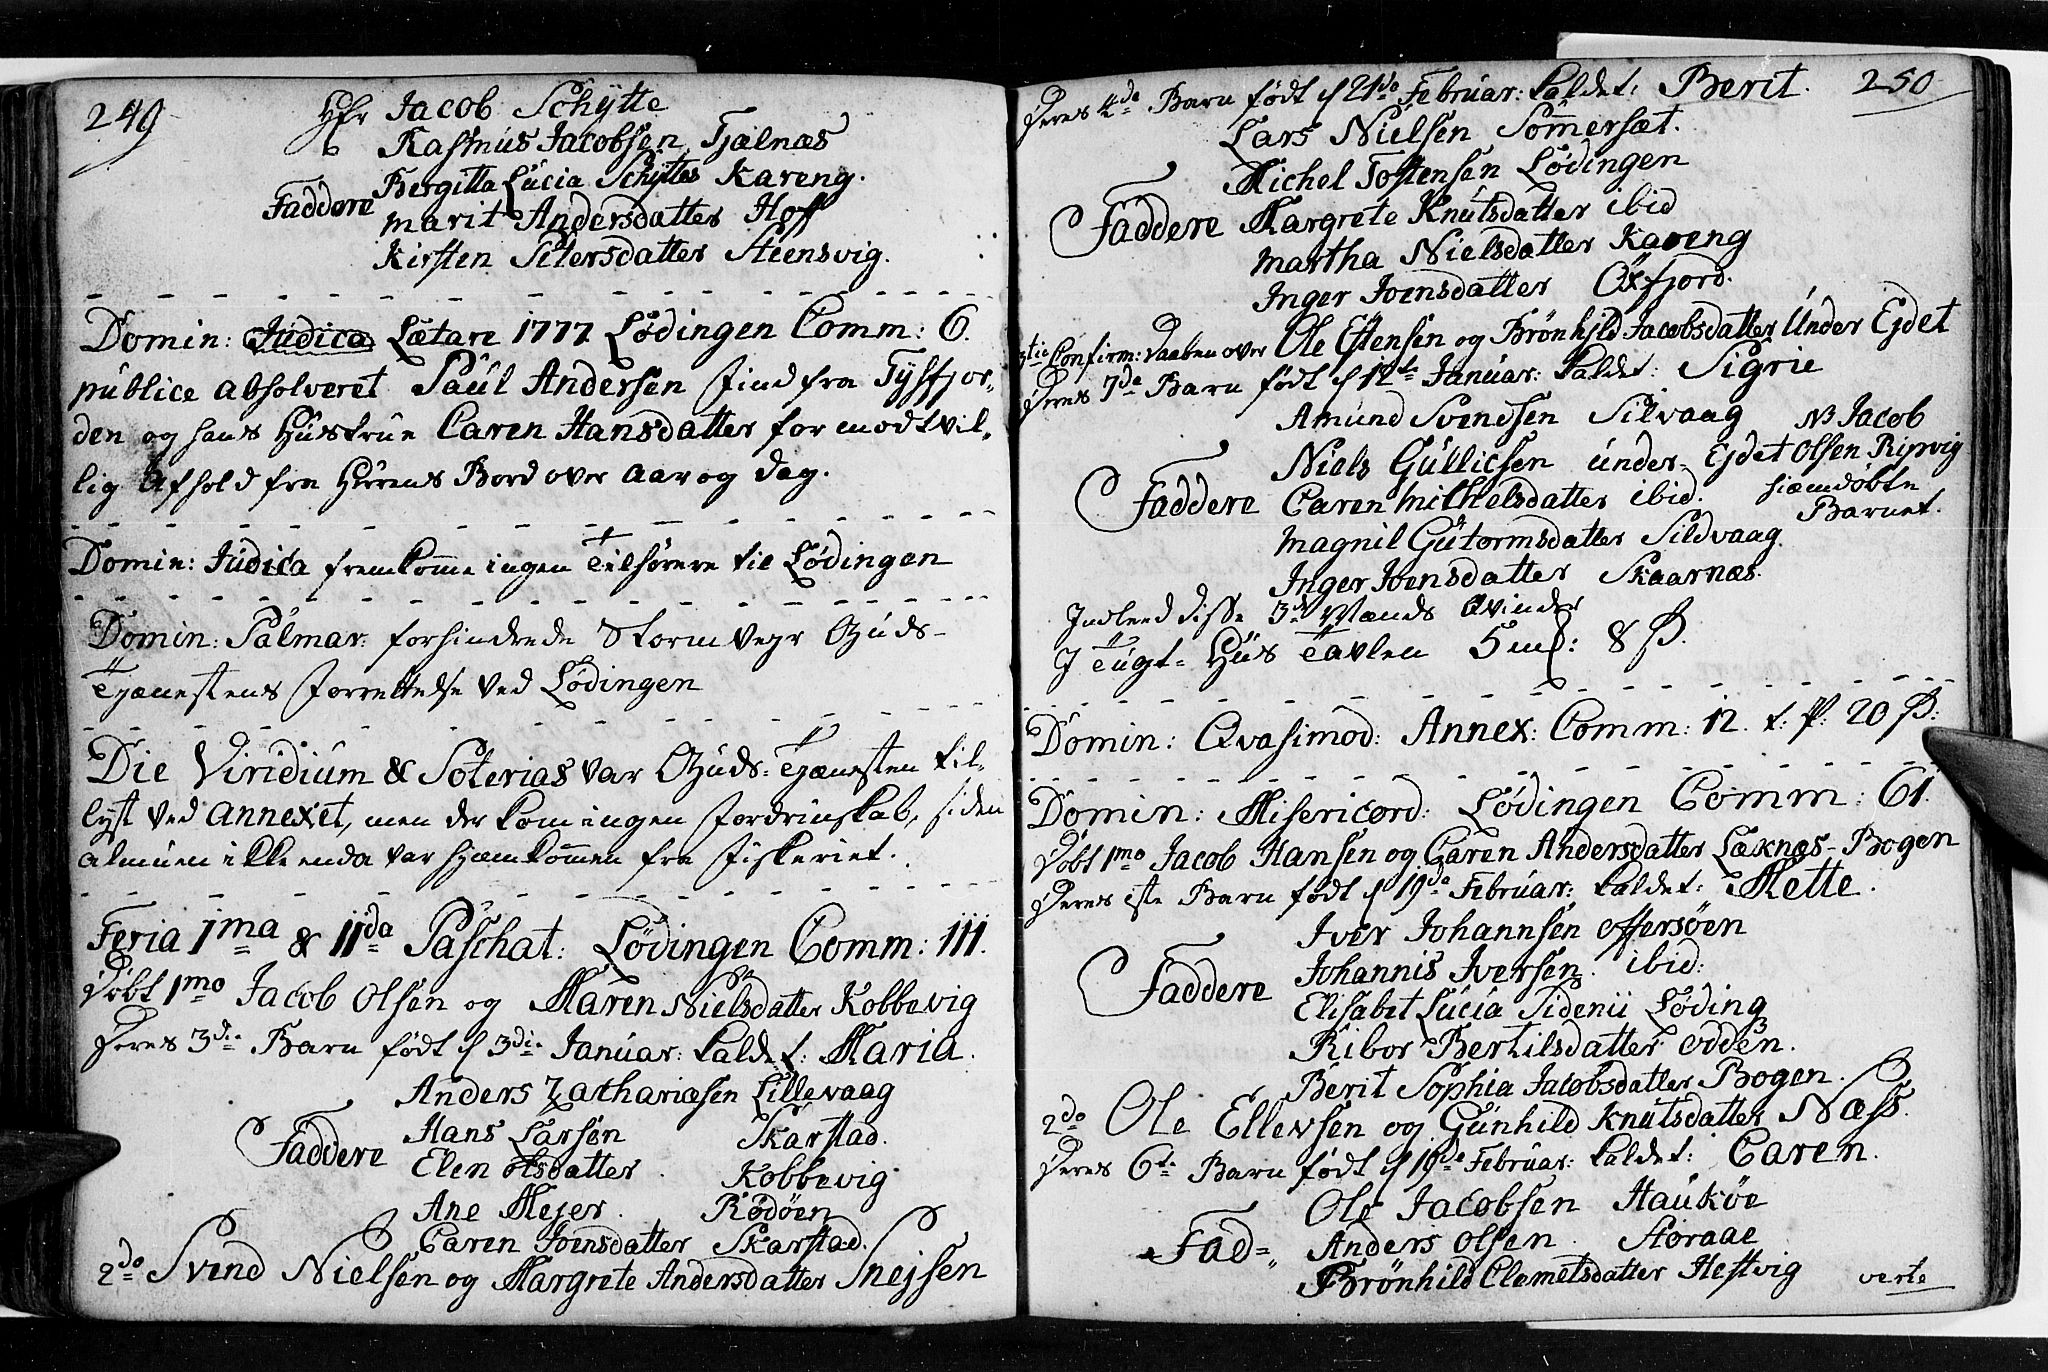 249
Hr Jacob Schytte
Rasmus Jacobsen Tjælnæs
Faddere Bergitta Lucia Schyttes Kareng.
Marit Andersdatter Hoff
Kirsten Petersdatter Steensvig.
Domin: Judica Lætare 1777 Lødingen Comm: 6.
publice absolveret Paul Andersen Find fra Tysfjor-
den og hans Hustrue Caren Hansdatter for modtvil-
lig Afhold fra Herrens Bord over aar og dag.
Domin: Judica fremkomme ingen Tilhørere til Lødingen
Domin: Palmar: forhindrede Stormvejr Guds-
Tjænestens Forrettelse ved Lødingen
Die Viridium & Soterias var Guds-Tjænesten til-
lyst ved Annexet, men der kom ingen Fordrinskab, siden
Almuen ikke enda var hjemkommen fra Fiskeriet.
Feria 1ma & IIda Paschat: Lødingen Comm: 111.
Døbt 1mo Jacob Olsen og Maren Nielsdatter Kobbevig
Deres 3die Barn født d 3die Januar: kaldet: Maria.
Anders Zachariæsen Lillevaag
Hans Larsen Skarstad.
Faddere Elen Olsdatter Kobbevig
Ane Mejer. Rødøen
Caren Joensdatter Skarstad.
2do Svend Nielsen og Margrete Andersdatter Snejsen
250
Deres 4de Barn født d 21de Februar: kaldet: Berit.
Lars Nielsen Sommersæt.
Michel Tostensen Lødingen
Faddere Margrete Knutsdatter ibid
Martha Nielsdatter Kareng
Inger Joensdatter Oxfjord.
3tie Confirm: Daaben over Ole Estensen og Brønhild Jacobsdatter Under Ejdet
Deres 7de Barn født d 12te Januar: kaldet: Sigrie
Amund Svendsen Silvaag NB Jacob
Niels Gullicsen under Ejdet Olsen Ripvig
Faddere Caren Mickelsdatter ibid. hiemdøbte
Magnil Gutormsdatter Sildvaag Barnet.
Inger Joensdatter Skaarnæs.
Indleed disse 3de Mænds Qvinder
I Tugt-Huus Tavlen 5 mk: 8 ß.
Domin: Qvasimod: Annex: Comm: 12. t: p: 20 ß:
Domin: Misericord: Lødingen Comm: 61.
Døbt 1mo Jacob Hansen og Caren Andersdatter Læknæs-Bogen
Deres 1ste Barn født d 19de Februar: kaldet: Mette.
Iver Johannsen Offersøen
Faddere Johannis Iversen. ibid:
Elisabet Lucia Sidenii Løding
Ribor Bertilsdatter Odden.
Berit Sophia Jacobsdatter Bogen.
2do Ole Ellevsen og Gunhild Knutsdatter Næss.
Deres 6te Barn født d 19de Februar: kaldet: Caren.
Ole Jacobsen Haukøe
Fad= Anders Olsen. Storaae
Brønhild Clemetsdatter Hestvig verte